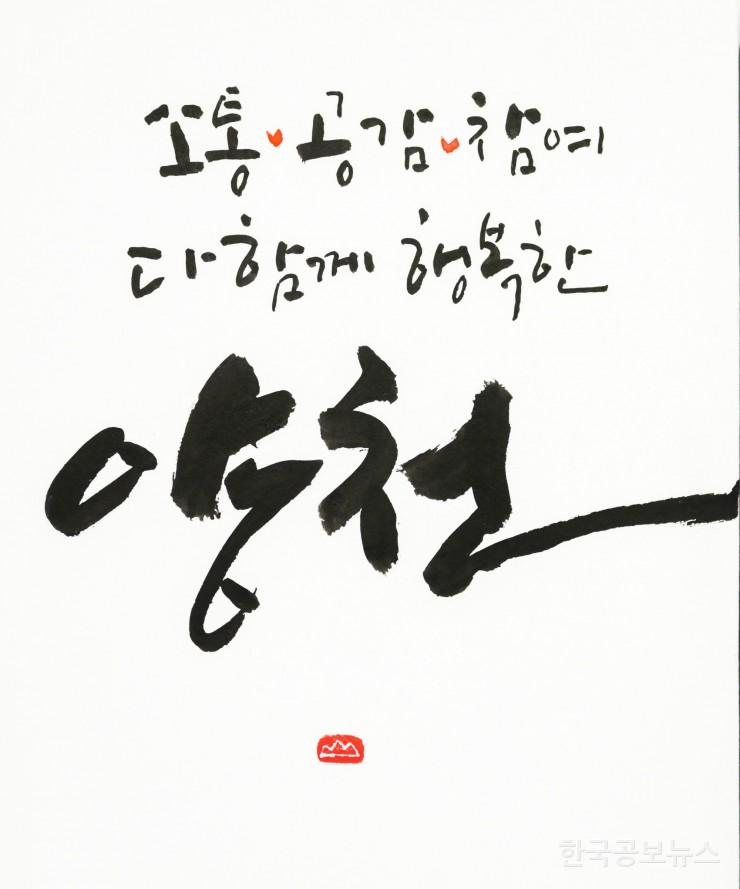 소통 공감 참여
다함께 행복한
양천
한국공보뉴스